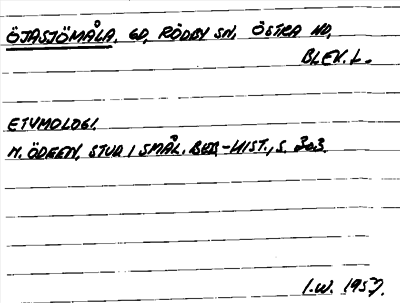 ÖJASJÖMÅLA, GD, RÖDBY SN, ÖSTRA HD,
BLEK. L.
ETYMOLOGI.
N. ÖDEEN, STUD I SMÅL. BEB.-HIST., S. 303.
I.W. 1957.